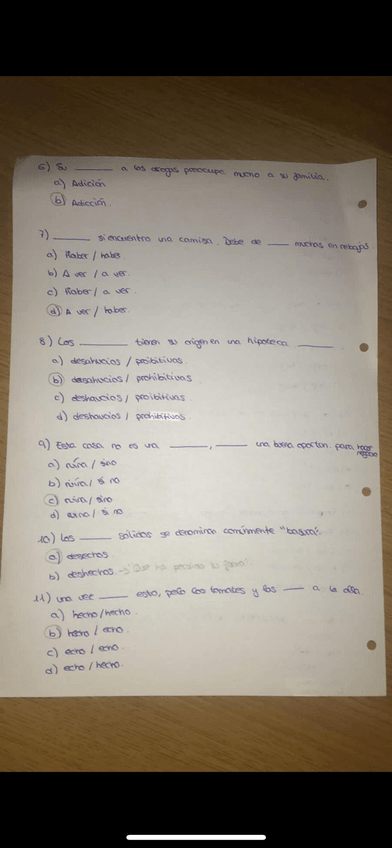 6) Su ______ a las drogas preocupa mucho a su familia.
a) Adición
b) Adicción.
7) ______ si encuentro una camisa. Debe de ____ muchas en rebajas
a) Haber / haber
b) A ver / a ver.
c) Haber / a ver.
d) A ver / haber.
8) Los ________ tienen su origen en una hipoteca ______
a) desahucios / proibitivas.
b) desahucios / prohibitivas
c) deshaucios / proibitivas.
d) deshaucios / prohibitivas.
9) Esta casa no es una ______, _____ una buena oportun. para hacer negocio
a) ruina / sino
b) / si no
c) ruina / sino
d) / si no
10) Los _____ sólidos se denominan comúnmente "basura".
a) desechos
b) deshechos
11) Una vez _____ esto, pelo los tomates y los ____ a la olla.
a) hecho / hecho.
b) hecho / echo.
c) echo / echo.
d) echo / hecho.